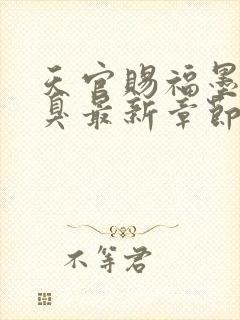 天官赐福墨
臭最新章節
不等君